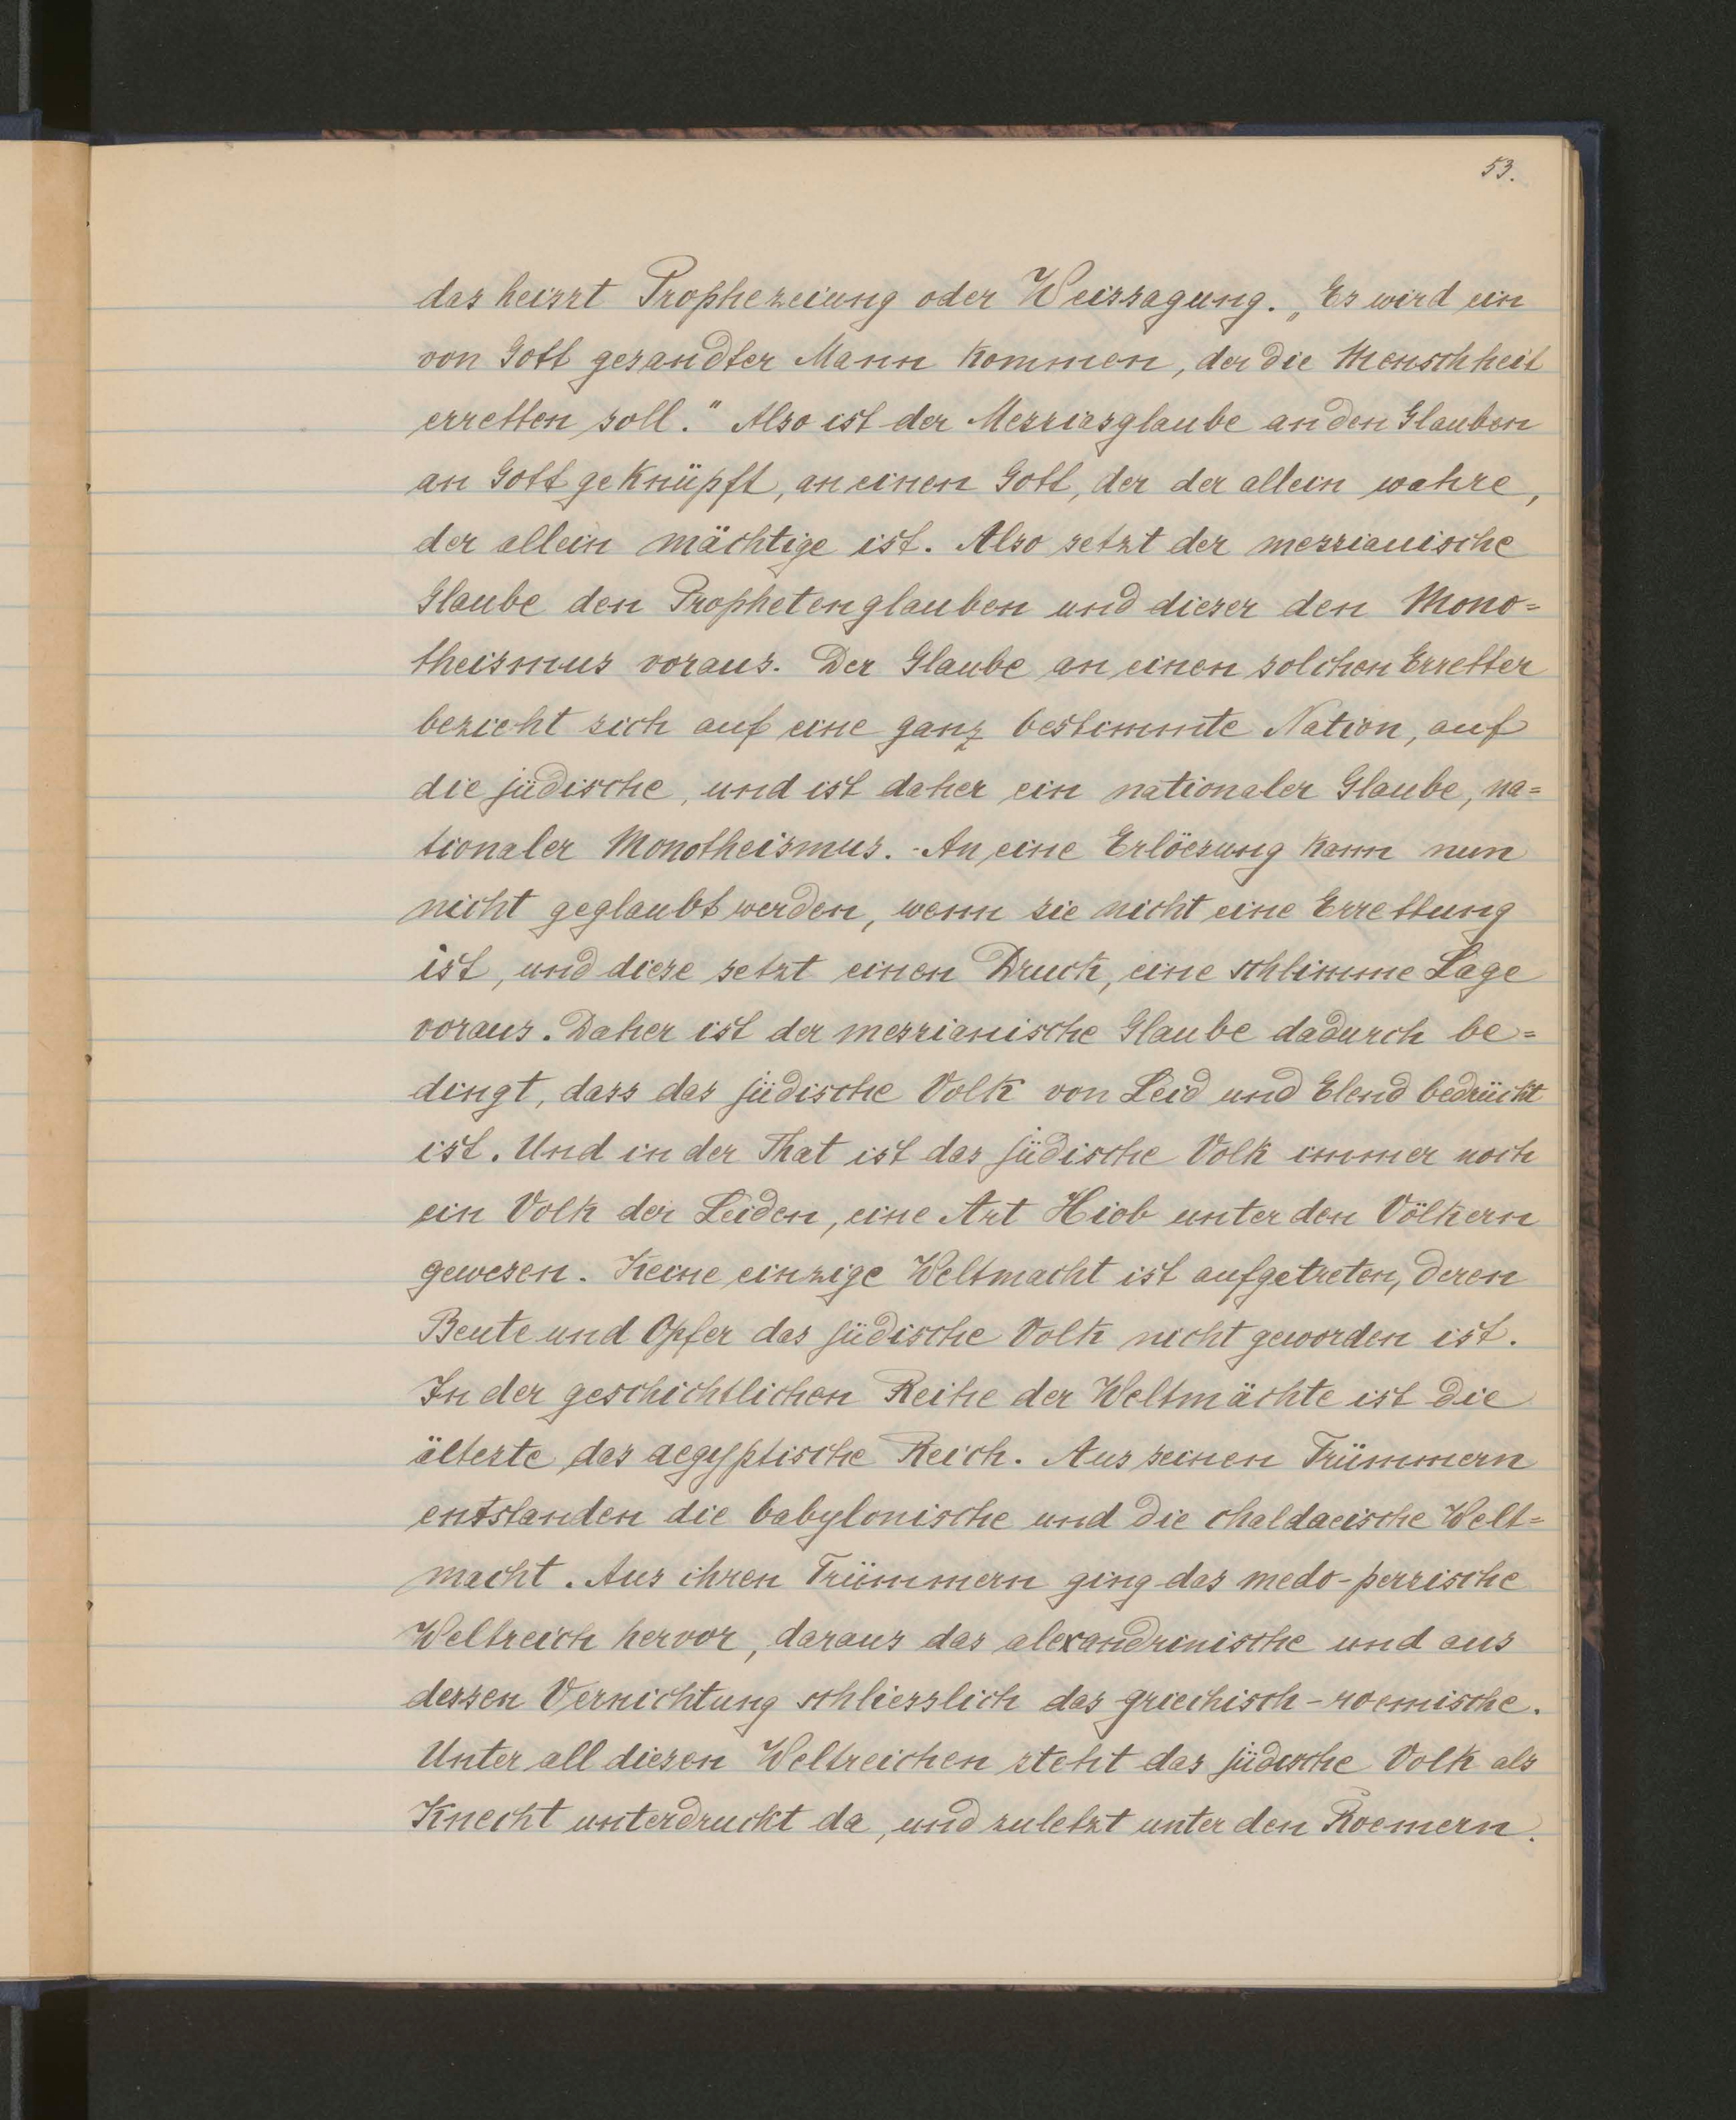 53.
das heisst Prophezeiung oder Weissagung. „Es wird ein
von Gott gesandter Mann kommen, der die Menschheit
erretten soll." Also ist der Messiasglaube an den Glauben
an Gott geknüpft, an einen Gott, der der allein wahre,
der allein mächtige ist. Also setzt der messianische
Glaube den Prophetenglauben und dieser den Mono=
theismus voraus. Der Glaube an einen solchen Erretter
bezieht sich auf eine ganz bestimmte Nation, auf
die jüdische, und ist daher ein nationaler Glaube, na=
tionaler Monotheismus. - An eine Erlöesung kann nun
nicht geglaubt werden, wenn sie nicht eine Errettung
ist, und diese setzt einen Druck, eine schlimme Lage
voraus. Daher ist der messianische Glaube dadurch be=
dingt, dass das jüdische Volk von Leid und Elend bedrückt
ist. Und in der That ist das jüdische Volk immer noch
ein Volk der Leiden, eine Art Hiob unter den Völkern
gewesen. Keine einzige Weltmacht ist aufgetreten, deren
Beute und Opfer das jüdische Volk nicht geworden ist.
In der geschichtlichen Reihe der Weltmächte ist die
älteste das aegyptische Reich. Aus seinen Trümmern
entstanden die babylonische und die chaldaeische Welt=
macht. Aus ihren Trümmern ging das medo-persische
Weltreich hervor, daraus das alexandrinische und aus
dessen Vernichtung schliesslich das griechisch-roemische.
Unter all diesen Weltreichen steht das jüdische Volk als
Knecht unterdruckt da, und zuletzt unter den Roemern.